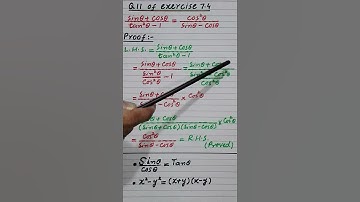 Q.11 of exercise 7.4
(Sinθ + Cosθ)/(tan²θ − 1) = Cos²θ/(Sinθ − Cosθ)
Proof:-
L.H.S. = (Sinθ + Cosθ)/(tan²θ − 1)
= (Sinθ + Cosθ)/(Sin²θ/Cos²θ − 1) = Sinθ + Cosθ / Cos²θ
= Sinθ + Cosθ / − Cos²θ × Cos²θ
= / (Sinθ + Cosθ)(Sinθ − Cosθ) × Cos²θ
= Cos²θ/(Sinθ − Cosθ) = R.H.S.
(Proved)
• Sinθ/Cosθ = Tanθ
• x² − y² = (x+y)(x−y)